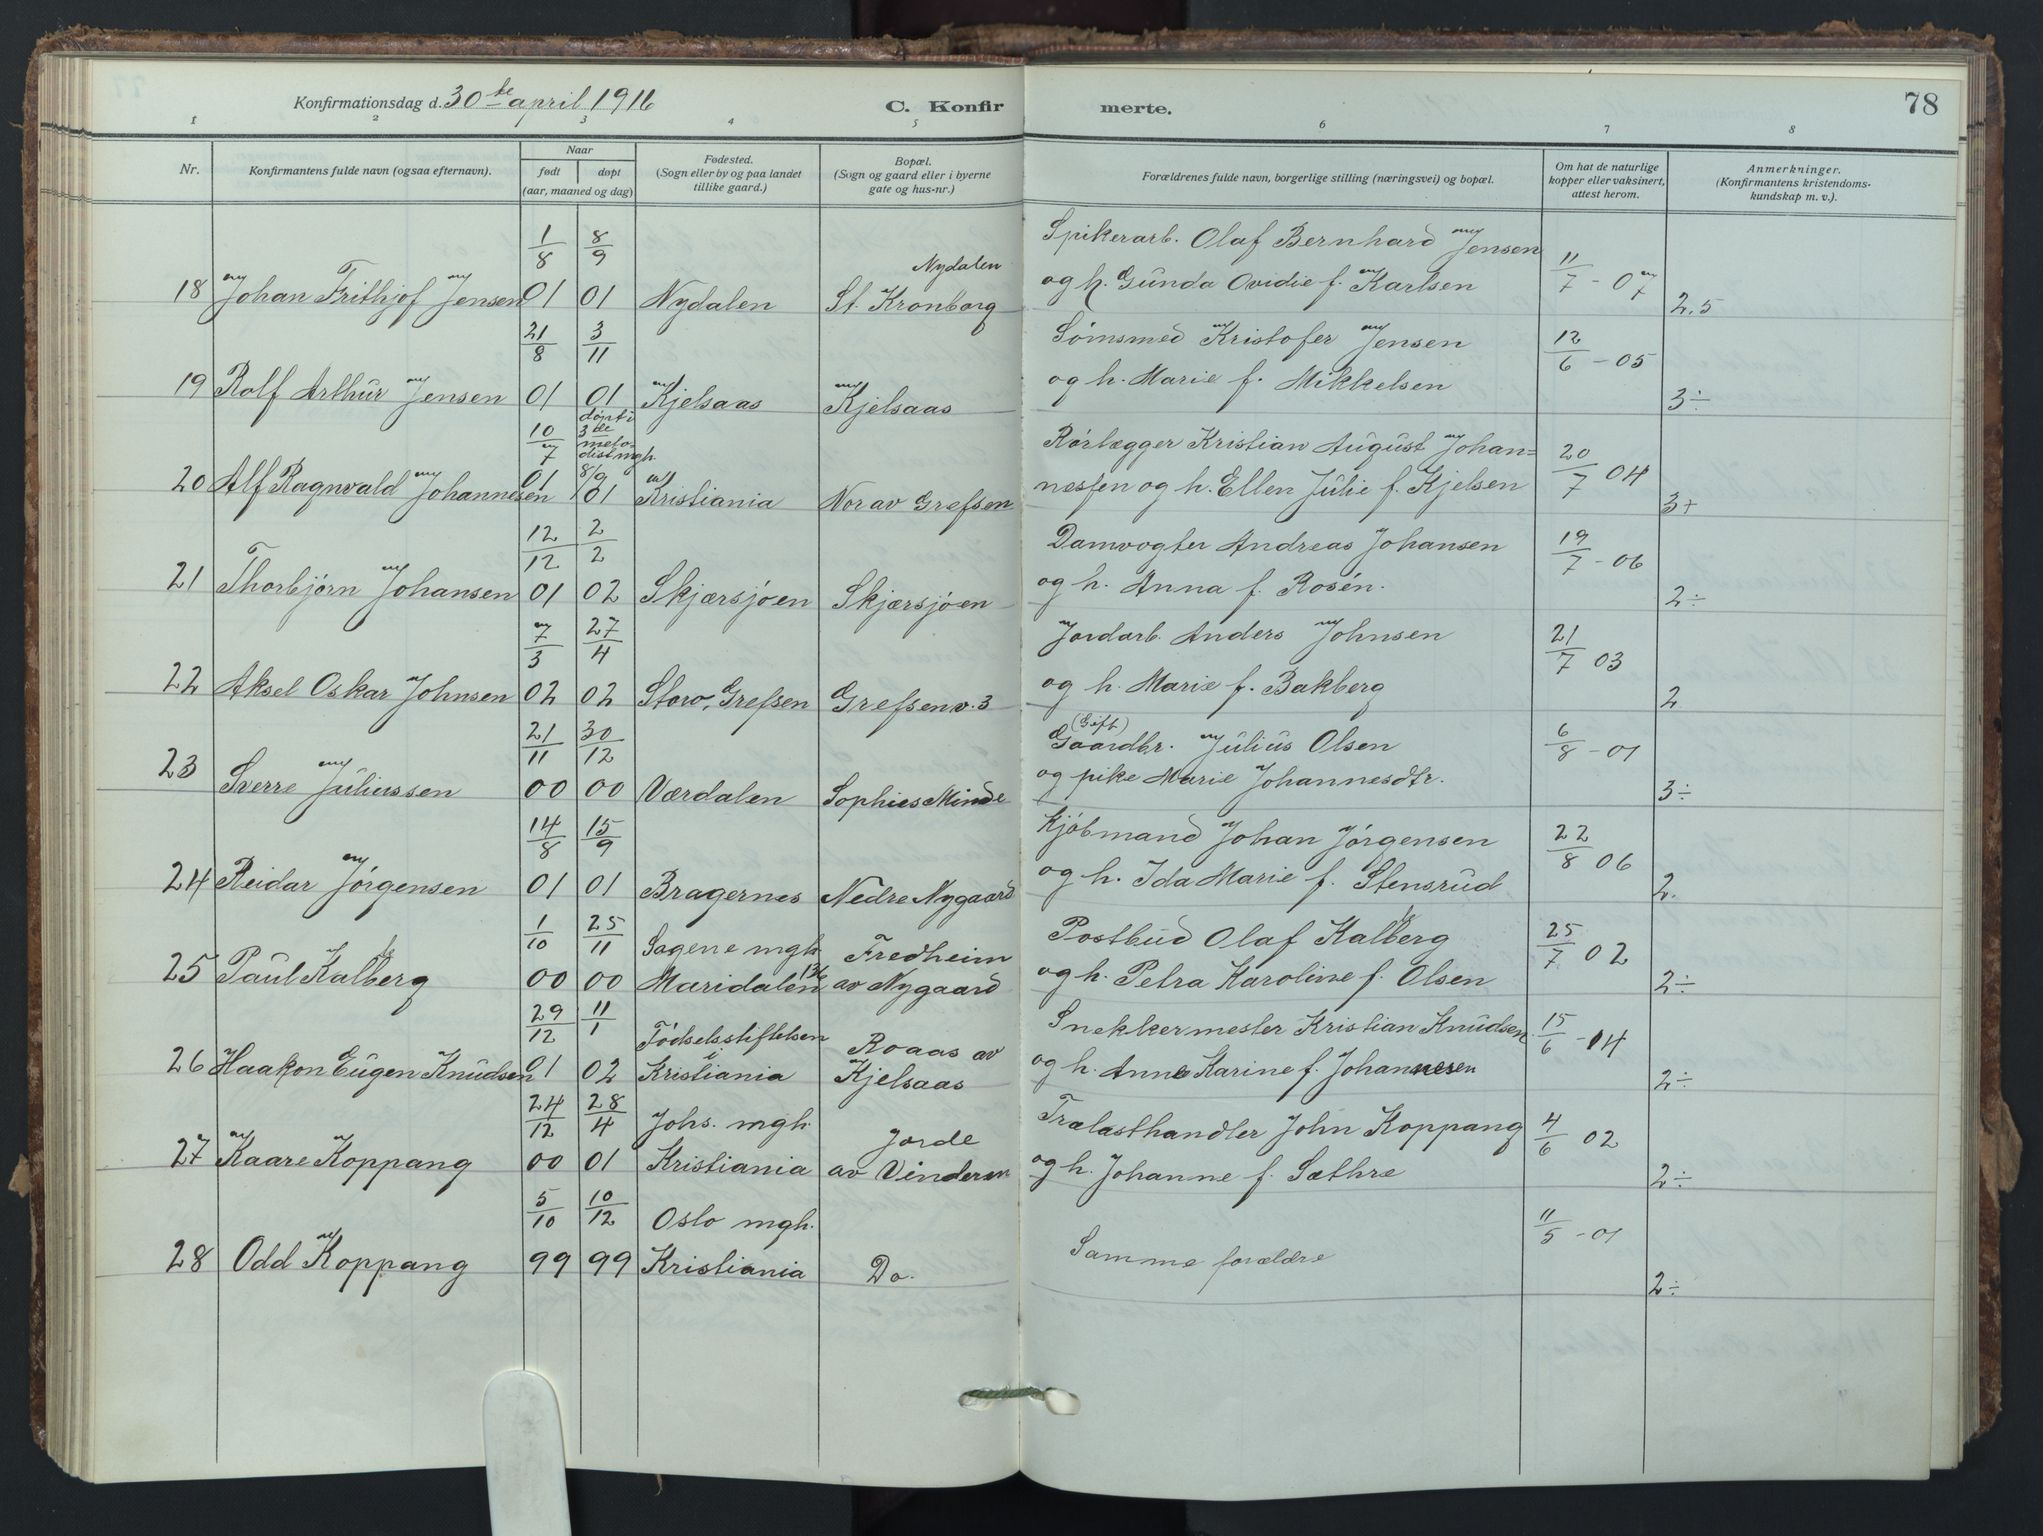 Konfirmationsdag d. 30te april 1916
C. Konfir
merte.
78
1 2 3 4 5 6 7 8
Nr.
Konfirmantens fulde navn (ogsaa efternavn).
Naar
født
døpt
(aar, maaned og dag)
Fødested.
(Sogn eller by og paa landet
tillike gaard.)
Bopæl.
(Sogn og gaard eller i byerne
gate og hus-nr.)
Forældrenes fulde navn, borgerlige stilling (næringsvei) og bopæl.
Om hat de naturlige
kopper eller vaksinert,
attest herom.
Anmerkninger.
(Konfirmantens kristendoms-
kundskap m. v.).
1/8 8/9 Nydalen Spikerarb. Olaf Bernhard Jensen 11/7 - 07
18 Johan Frithjof Jensen 01 01 Nydalen St. Kronborg og h. Gunda Ovidie f. Karlsen 2.5
21/8 3/11 Sømsmed Kristofer Jensen 12/6 - 05
19 Rolf Arthur Jensen 01 01 Kjelsaas Kjelsaas og h. Marie f. Mikkelsen 3÷
10/7 døpt i 3de metodistmgh. 8/9 Rørlægger Kristian August Johan= 20/7 04
20 Alf Ragnvald Johannesen 01 01 Kristiania Nor av Grefsen nessen og h. Ellen Julie f. Kjelsen 3+
12/12 2/2 Damvogter Andreas Johansen 19/7 - 06
21 Thorbjørn Johansen 01 02 Skjærsjøen Skjærsjøen og h. Anna f. Rosén. 2÷
7/3 27/4 Jordarb. Anders Johnsen 21/7 03
22 Aksel Oskar Johnsen 02 02 Storo, Grefsen Grefsenv. 3 og h. Marie f. Bakberg 2
21/11 30/12 (Gift) Gaardbr. Julius Olsen 6/8 - 01
23 Sverre Juliussen 00 00 Værdalen Sophies Minde og pike Marie Johannesdtr. 3÷
14/8 15/9 Kjøbmand Johan Jørgensen 22/8 06
24 Reidar Jørgensen 01 01 Bragernes Nedre Nygaard og h. Ida Marie f. Stensrud 2.
1/10 25/11 Sagene mgh. Fredheim Postbud Olaf Kalberg 25/7 02
25 Paul Kalberg 00 00 Maridalen 136 av Nygaard og h. Petra Karoline f. Olsen 2÷
29/12 11/1 Fødselsstiftelsen Roaas av Snekkermester Kristian Knudsen 15/6 - 14
26 Haakon Eugen Knudsen 01 02 Kristiania Kjelsaas og h. Anna Karine f. Johannesen 2÷
24/12 28/4 Johs. mgh. Jorde Trælasthandler John Koppang 4/6 02
27 Kaare Koppang 00 01 Kristiania av Vinderen og h. Johanne f. Sæthre 2÷
5/10 10/12 Oslo mgh. 11/5 - 01
28 Odd Koppang 99 99 Kristiania Do. Samme forældre 2÷